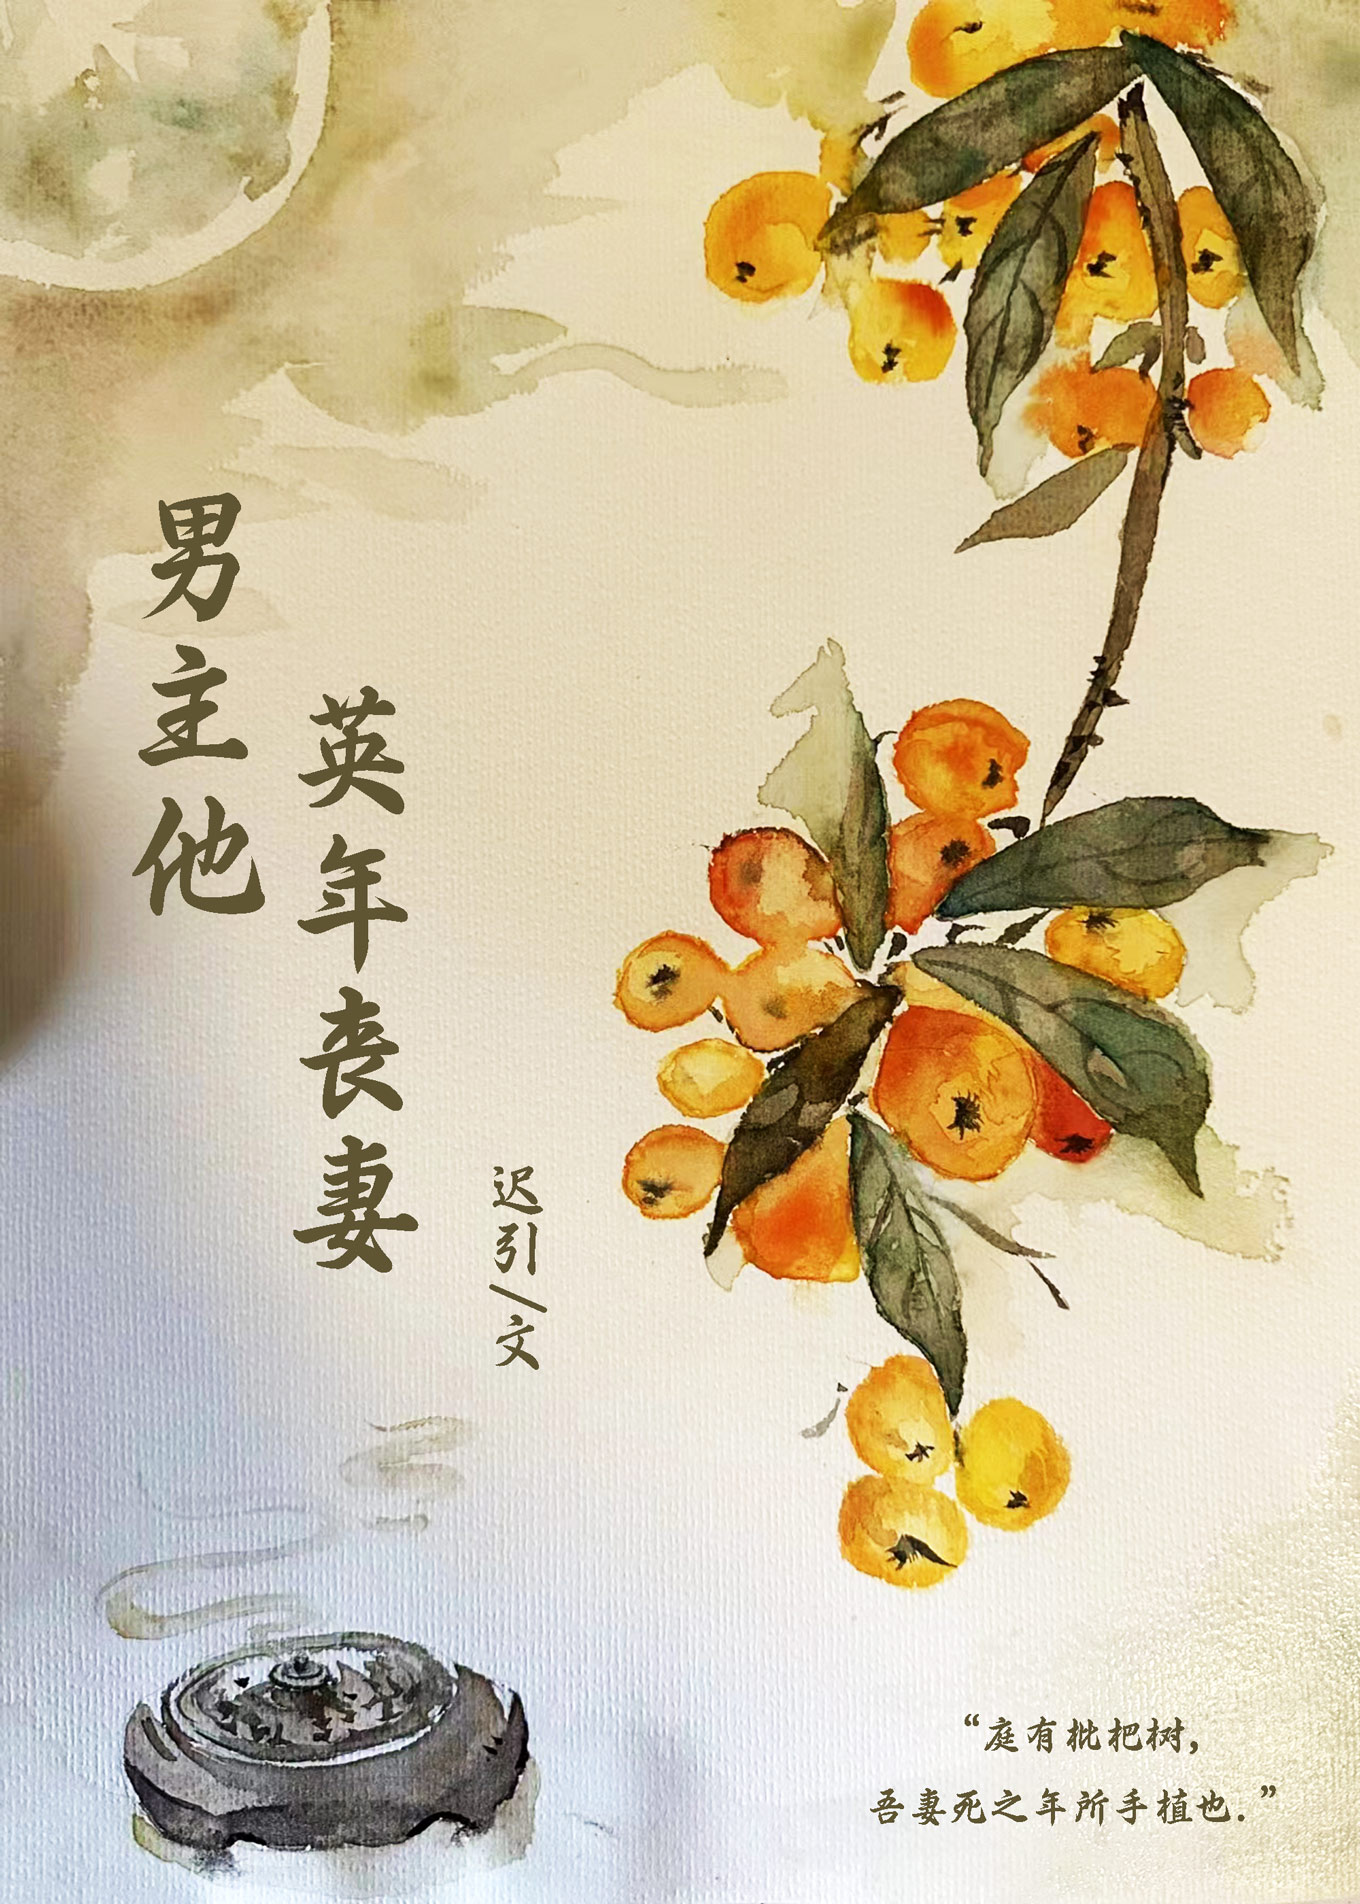 男主他
英年丧妻
迟引/文
“庭有枇杷树，
吾妻死之年所手植也.”